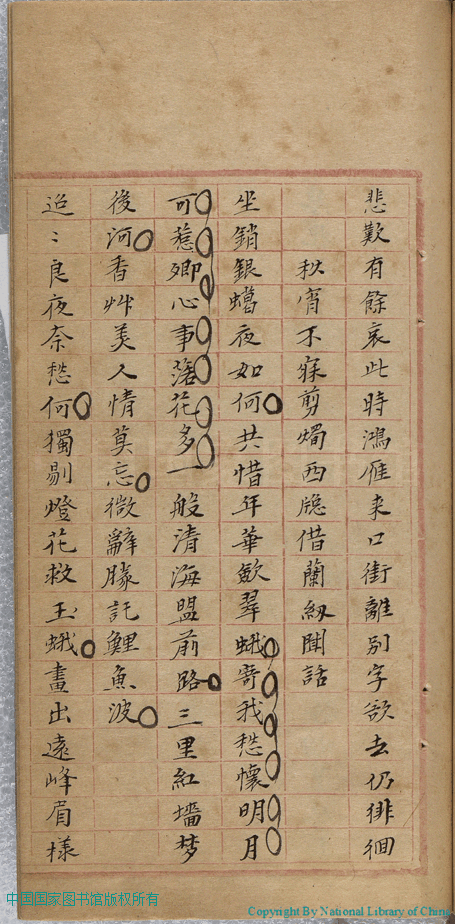 悲歎有餘哀此時鴻雁来口銜離別字欲去仍徘徊
秋宵不寐剪燭西牕借蘭紉閒話
坐銷銀蠟夜如何共惜年華斂翠蛾寄我愁懷明月
可惹卿心事落花多一般清海盟前路三里紅墻梦
後河香艸美人情莫忘微辭滕託鯉魚波
迢〻良夜奈愁何獨剔燈花救玉蛾畫出遠峰眉様
中国国家图书馆版权所有
Copyright By National Library of China